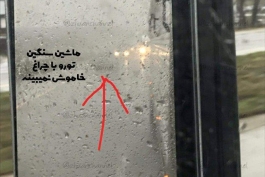 ماشین سنگین
تورو با چراغ
خاموش نمیبینه